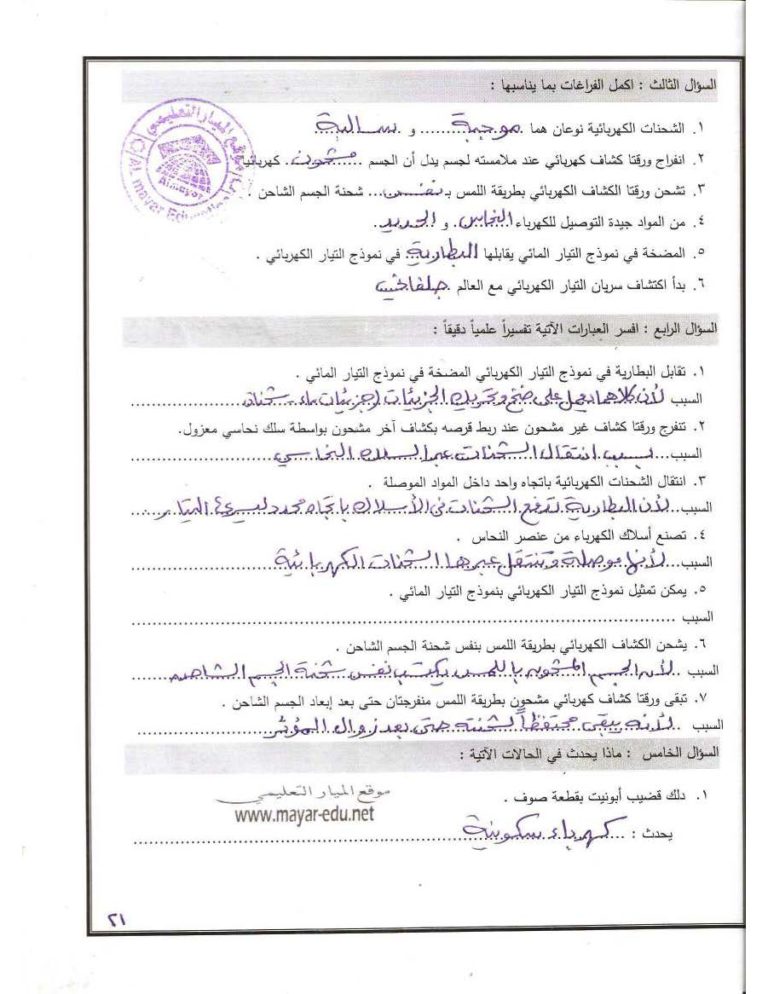 السؤال الثالث : اكمل الفراغات بما يناسبها :
١. الشحنات الكهربائية نوعان هما موجبة و سالبة
٢. انفراج ورقتا كشاف كهربائي عند ملامسته لجسم يدل أن الجسم مشحون كهربائياً
٣. تشحن ورقتا الكشاف الكهربائي بطريقة اللمس بـ نفس شحنة الجسم الشاحن .
٤. من المواد جيدة التوصيل للكهرباء النحاس و الحديد
٥. المضخة في نموذج التيار المائي يقابلها البطارية في نموذج التيار الكهربائي .
٦. بدأ اكتشاف سريان التيار الكهربائي مع العالم جلفاني
السؤال الرابع : افسر العبارات الآتية تفسيراً علمياً دقيقاً :
١. تقابل البطارية في نموذج التيار الكهربائي المضخة في نموذج التيار المائي .
السبب لأن كلاهما يعمل على ضخ وتحريك الجزيئات (جزيئات ماء - شحنات
٢. تنفرج ورقتا كشاف غير مشحون عند ربط قرصه بكشاف آخر مشحون بواسطة سلك نحاسي معزول.
السبب بسبب انتقال الشحنات عبر السلك النحاسي
٣. انتقال الشحنات الكهربائية باتجاه واحد داخل المواد الموصلة .
السبب لأن البطارية تدفع الشحنات في الأسلاك باتجاه محدد ليسري التيار
٤. تصنع أسلاك الكهرباء من عنصر النحاس .
السبب لأنها موصلة وتنتقل عبرها الشحنات الكهربائية
٥. يمكن تمثيل نموذج التيار الكهربائي بنموذج التيار المائي .
السبب
٦. يشحن الكشاف الكهربائي بطريقة اللمس بنفس شحنة الجسم الشاحن .
السبب لأن الجسم المشحون باللمس يكتسب نفس شحنة الجسم الشاحن
٧. تبقى ورقتا كشاف كهربائي مشحون بطريقة اللمس منفرجتان حتى بعد إبعاد الجسم الشاحن .
السبب لأنه يبقى محتفظاً لشحنته حتى بعد زوال المؤثر
السؤال الخامس : ماذا يحدث في الحالات الآتية :
١. دلك قضيب أبونيت بقطعة صوف .
يحدث : كهرباء سكونية
موقع الميار التعليمي
www.mayar-edu.net
موقع الميار التعليمي
Al mayar
Almayar
٢١